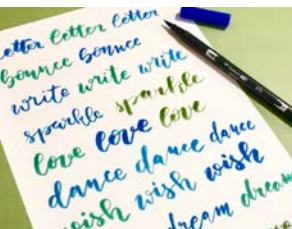 letter letter letter
bounce bounce
write write write
sparkle sparkle
love love love
dance dance dance
wish wish wish
dream dream